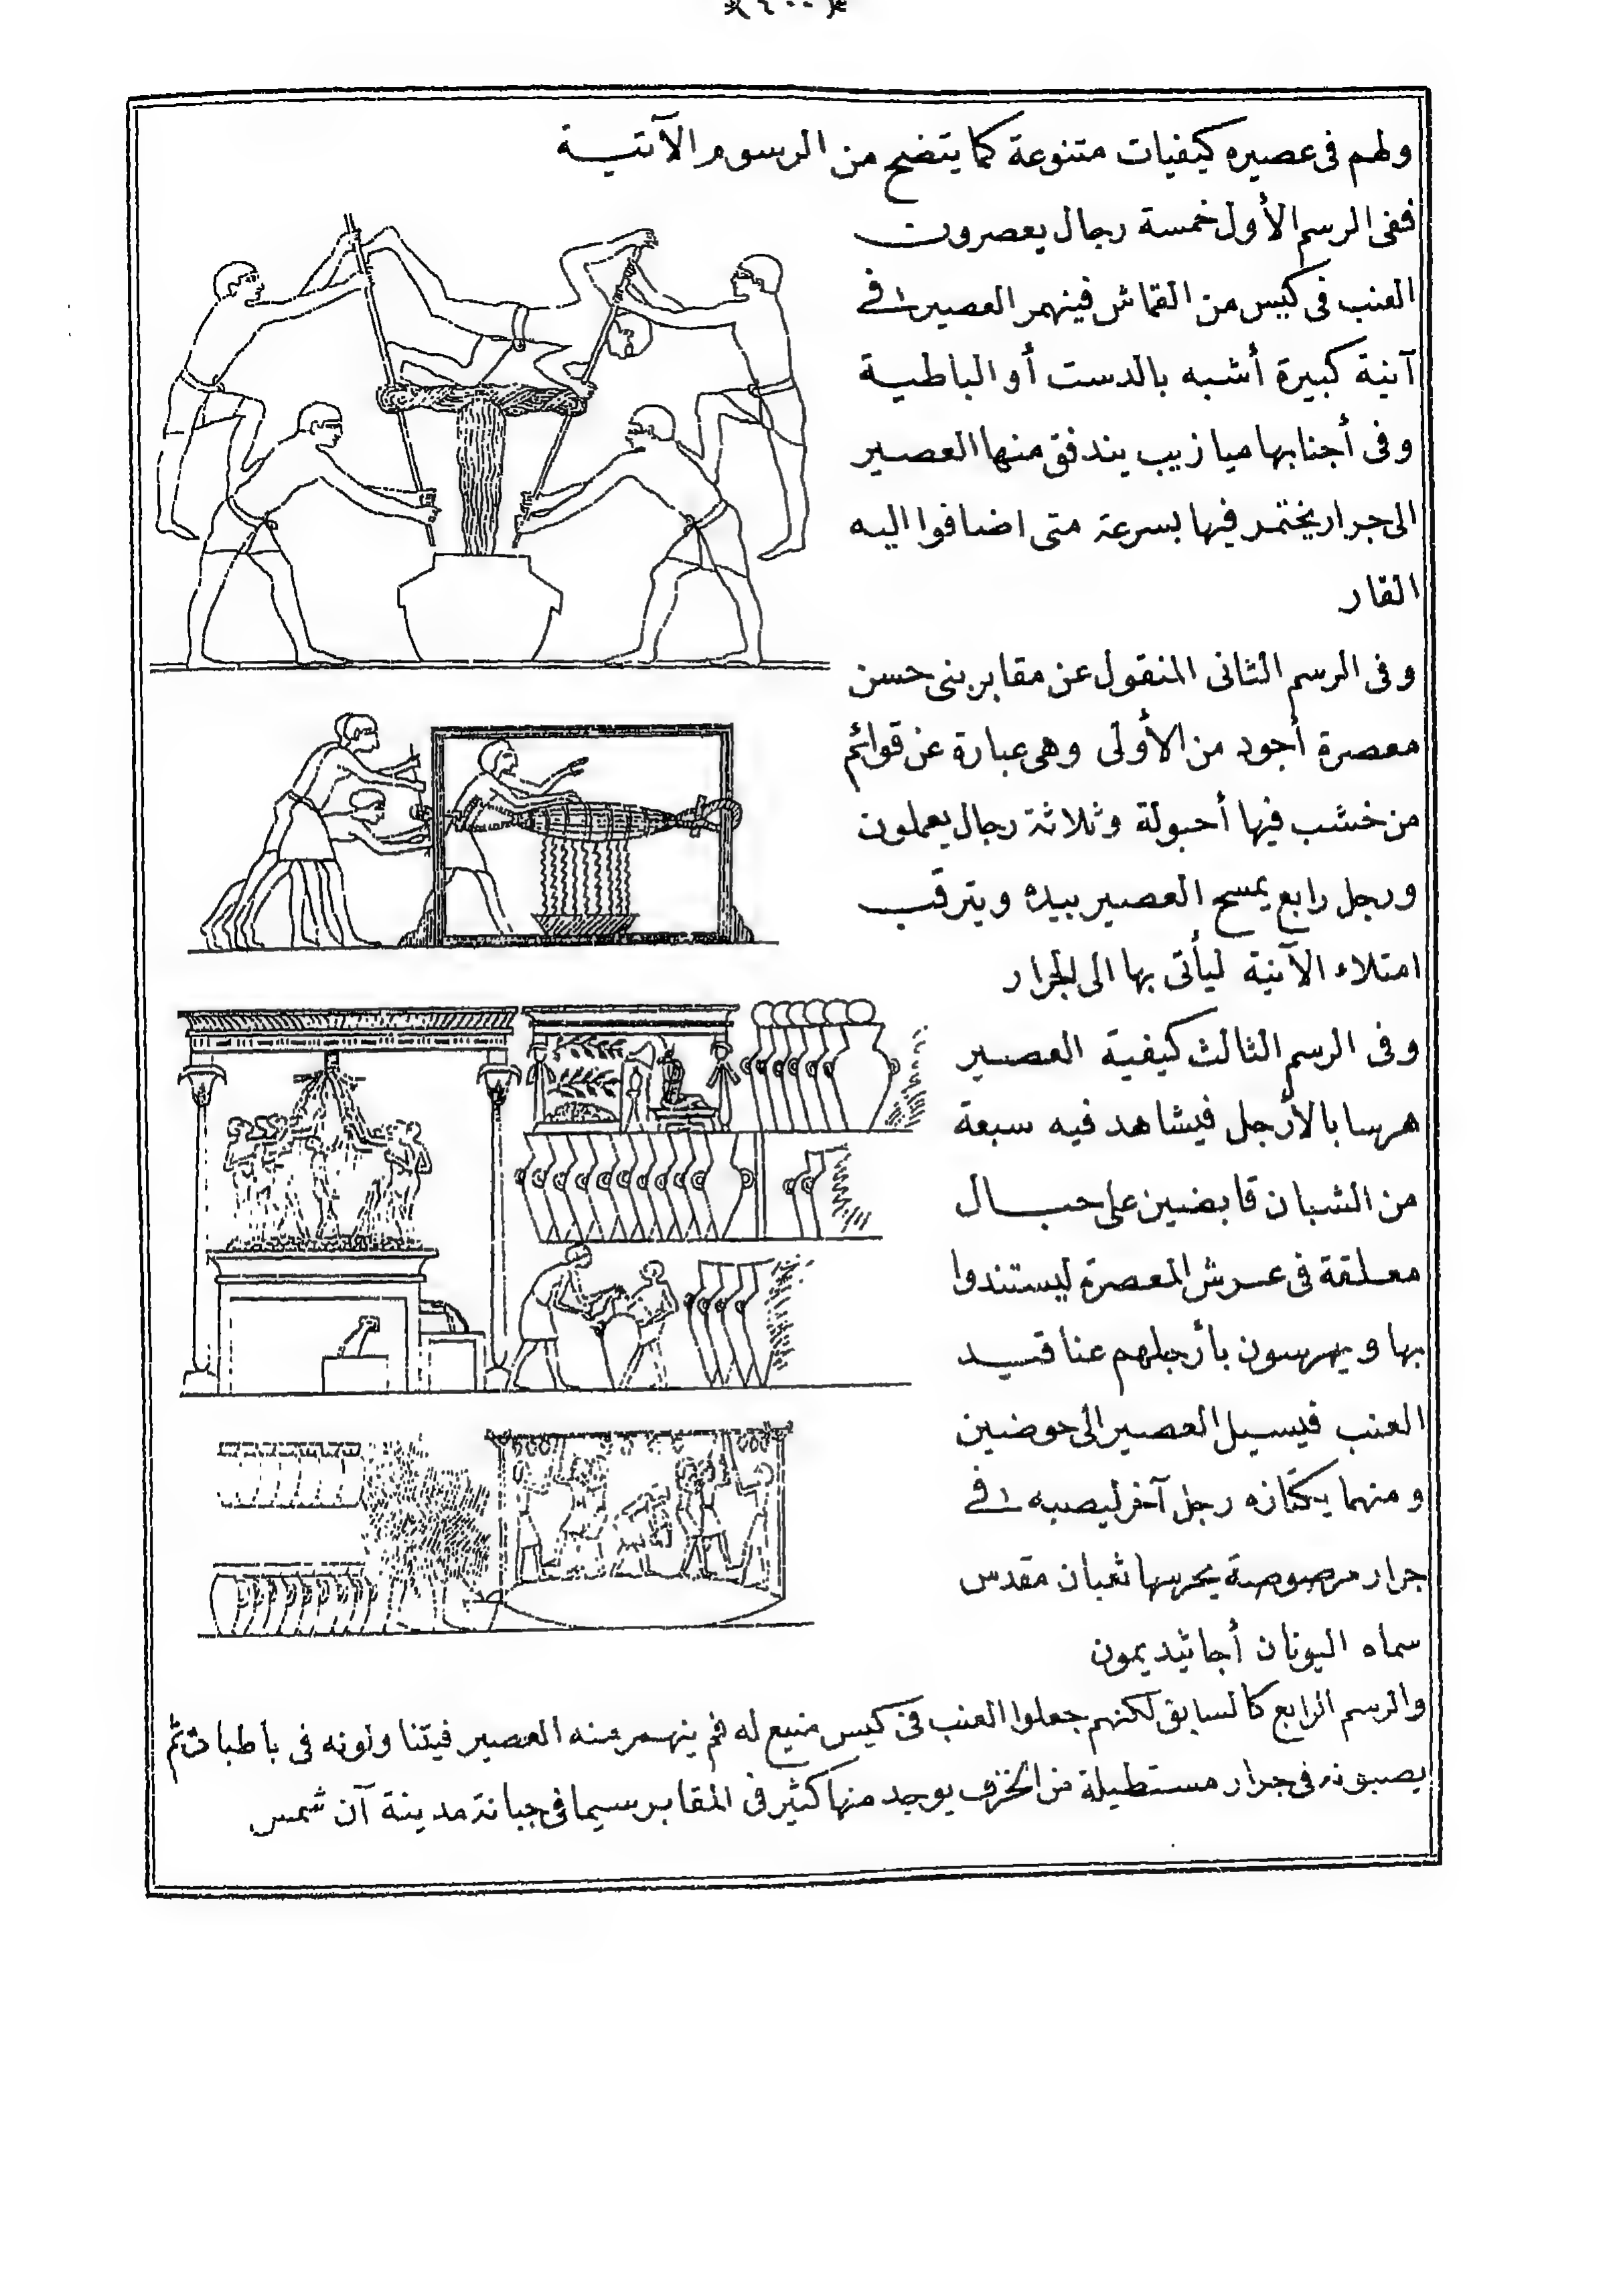 ولهم فى عصيره كيفيات متنوعة كما يتضح من الرسوم الآتية
ففى الرسم الأول خمسة رجال يعصرون
العنب فى كيس من القماش فينهمر العصير فى
آنية كبيرة أشبه بالدست أو الباطية
وفى أجنابها ميازيب يندفق منها العصير
الى جرار يختمر فيها بسرعة متى اضافوا اليه
القار
وفى الرسم الثانى المنقول عن مقابر بنى حسن
معصرة أجود من الأولى وهى عبارة عن قوائم
من خشب فيها أحبولة وثلاثة رجال يعملون
ورجل رابع يمسح العصير بيده ويترقب
امتلاء الآنية ليأتى بها الى الجرار
وفى الرسم الثالث كيفية العصير
هرسا بالأرجل فيشاهد فيه سبعة
من الشبان قابضين على حبال
معلقة فى عرش المعصرة ليستندوا
بها ويهرسون بأرجلهم عناقيد
العنب فيسيل العصير الى حوضين
ومنهما يكتازه رجل آخر ليصبه فى
جرار مرصوصة يحرسها ثعبان مقدس
سماه اليونان أجاثيديمون
والرسم الرابع كالسابق لكنهم جعلوا العنب فى كيس منيع له فم ينهمر منه العصير فيتناولونه فى باطيات ثم
يصبونه فى جرار مستطيلة من الخزف يوجد منها كثير فى المقابر سيما فى جبانة مدينة آن شمس